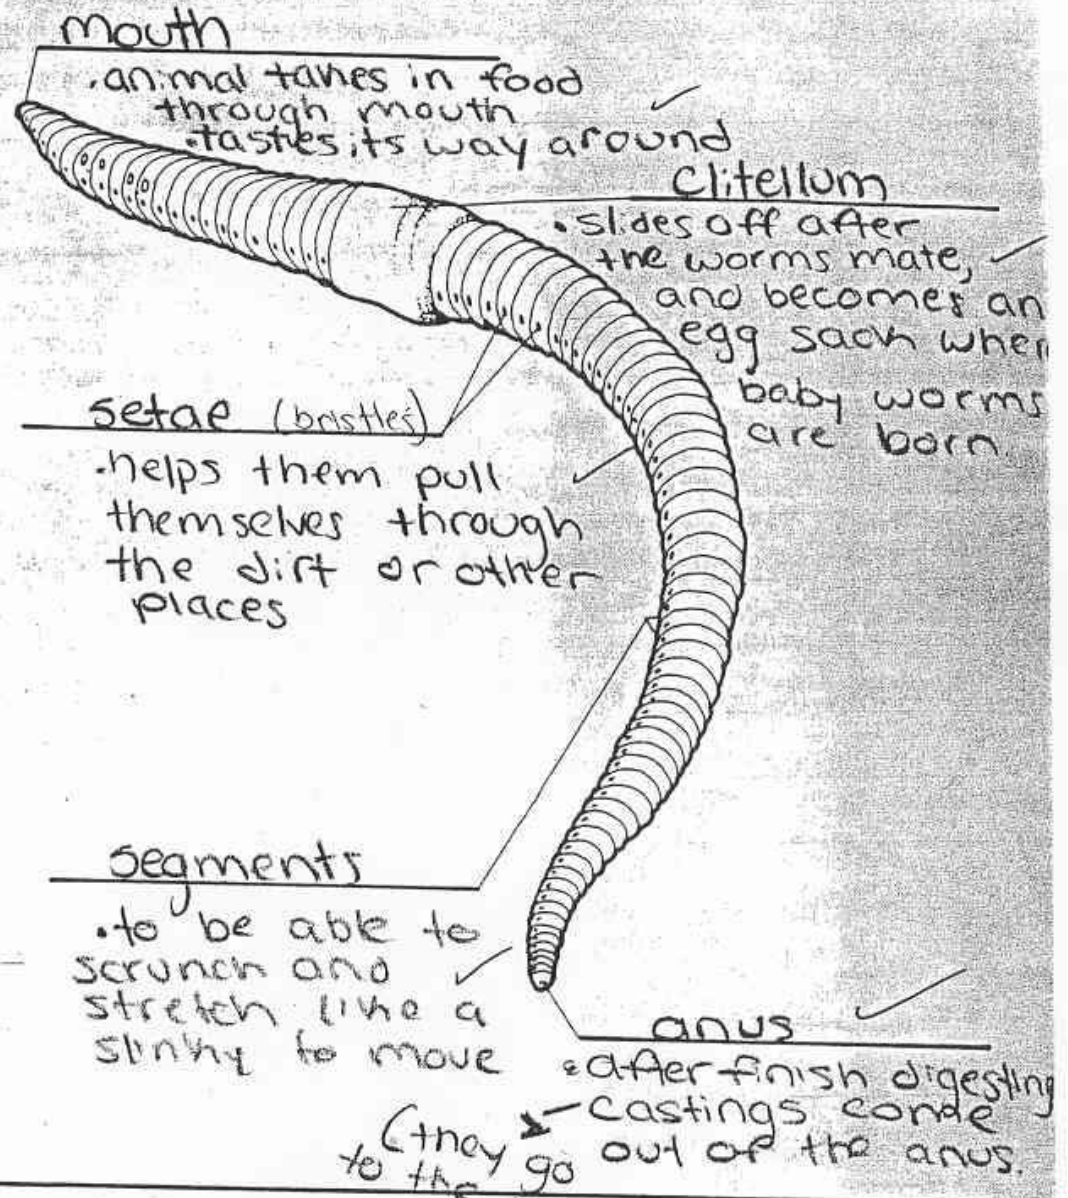 mouth
• animal takes in food
through mouth
• tastes its way around
Clitellum
• slides off after
the worms mate,
and becomes an
egg sach when
baby worms
are born.
setae (bristles)
• helps them pull
themselves through
the dirt or other
places
segments
• to be able to
scrunch and
stretch like a
slinky to move
anus
• after finish digesting
castings come
out of the anus.
(they go
to the